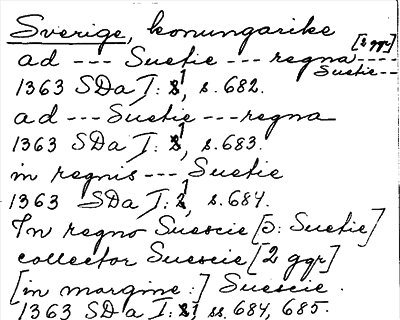 Sverige, konungarike
ad --- Suetie --- regna [2 ggr] ----
Suetie ---
1363 SDa I: 1, s. 682.
ad --- Suetie --- regna
1363 SDa I: 1, s. 683.
in regnis --- Suetie
1363 SDa I: 1, s. 684.
In regno Suescie [ɔ: Suetie]
collector Suescie [2 ggr]
[in margine:] Suescie.
1363 SDa I: 1, ss. 684, 685.